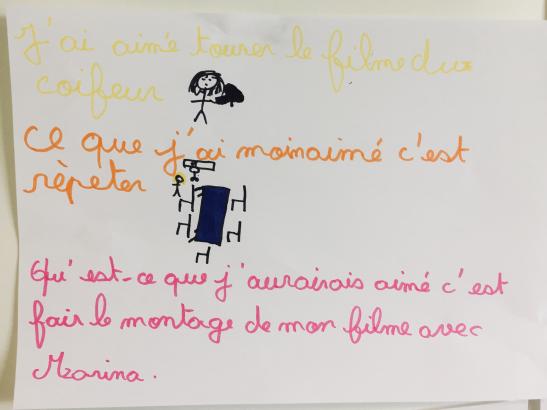 J'ai aimé tourer le filme dux
coifeur
Ce que j'ai moinaimé c'est
rèpeter
Qu'est-ce que j'aurairais aimé c'est
fair le montage de mon filme avec
Marina.